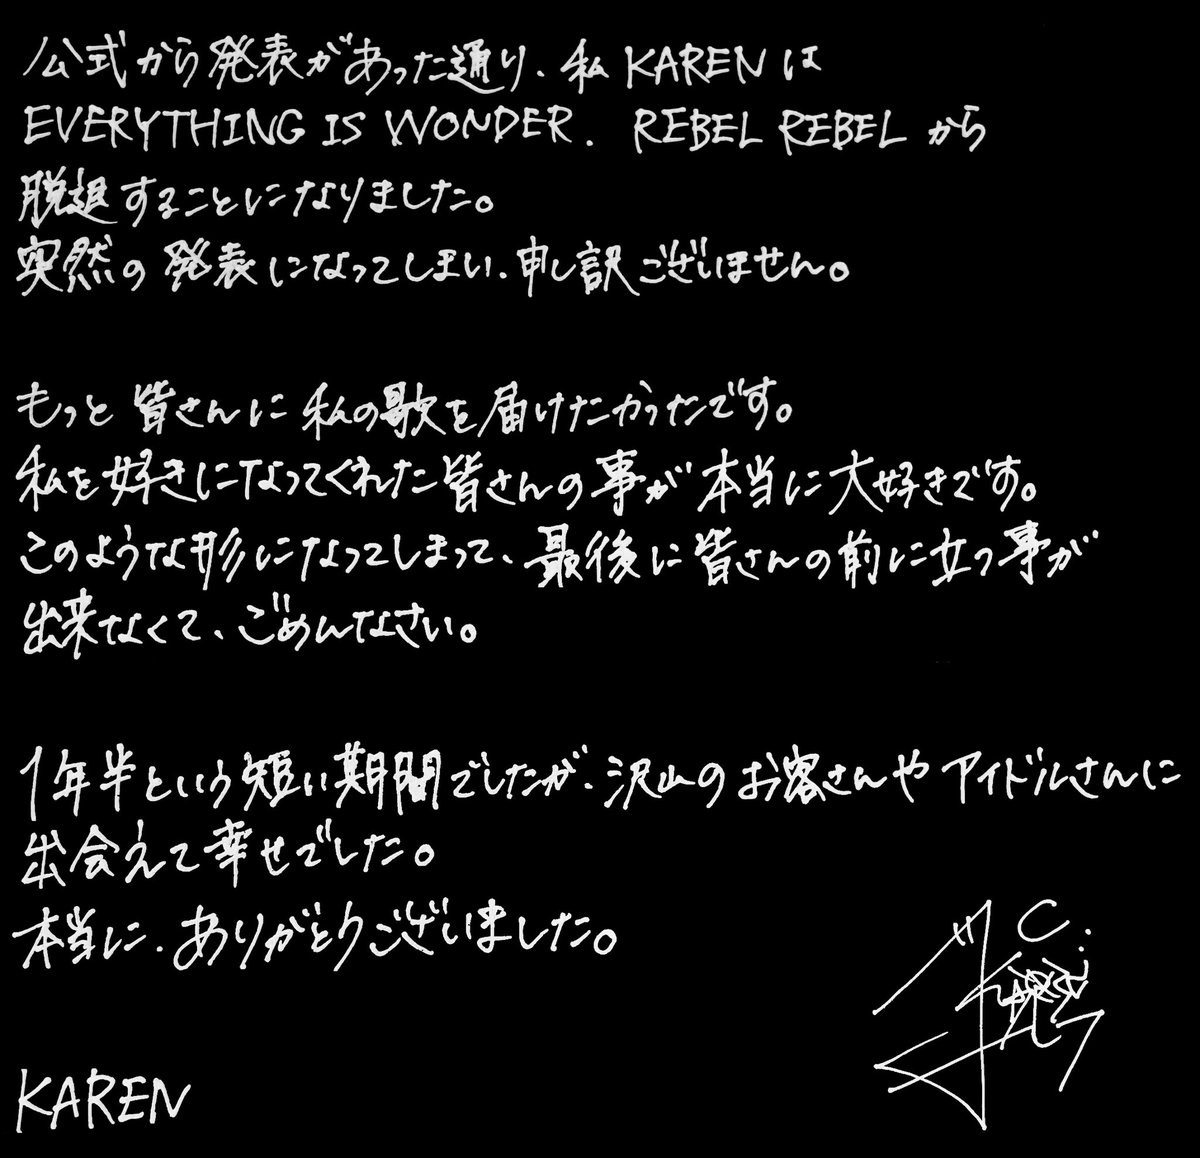 公式から発表があった通り、私 KAREN は
EVERYTHING IS WONDER. REBEL REBEL から
脱退することになりました。
突然の発表になってしまい、申し訳ございません。
もっと皆さんに私の歌を届けたかったです。
私を好きになってくれた皆さんの事が本当に大好きです。
このような形になってしまって、最後に皆さんの前に立つ事が
出来なくて、ごめんなさい。
1年半という短い期間でしたが、沢山のお客さんやアイドルさんに
出会えて幸せでした。
本当に、ありがとうございました。
KAREN